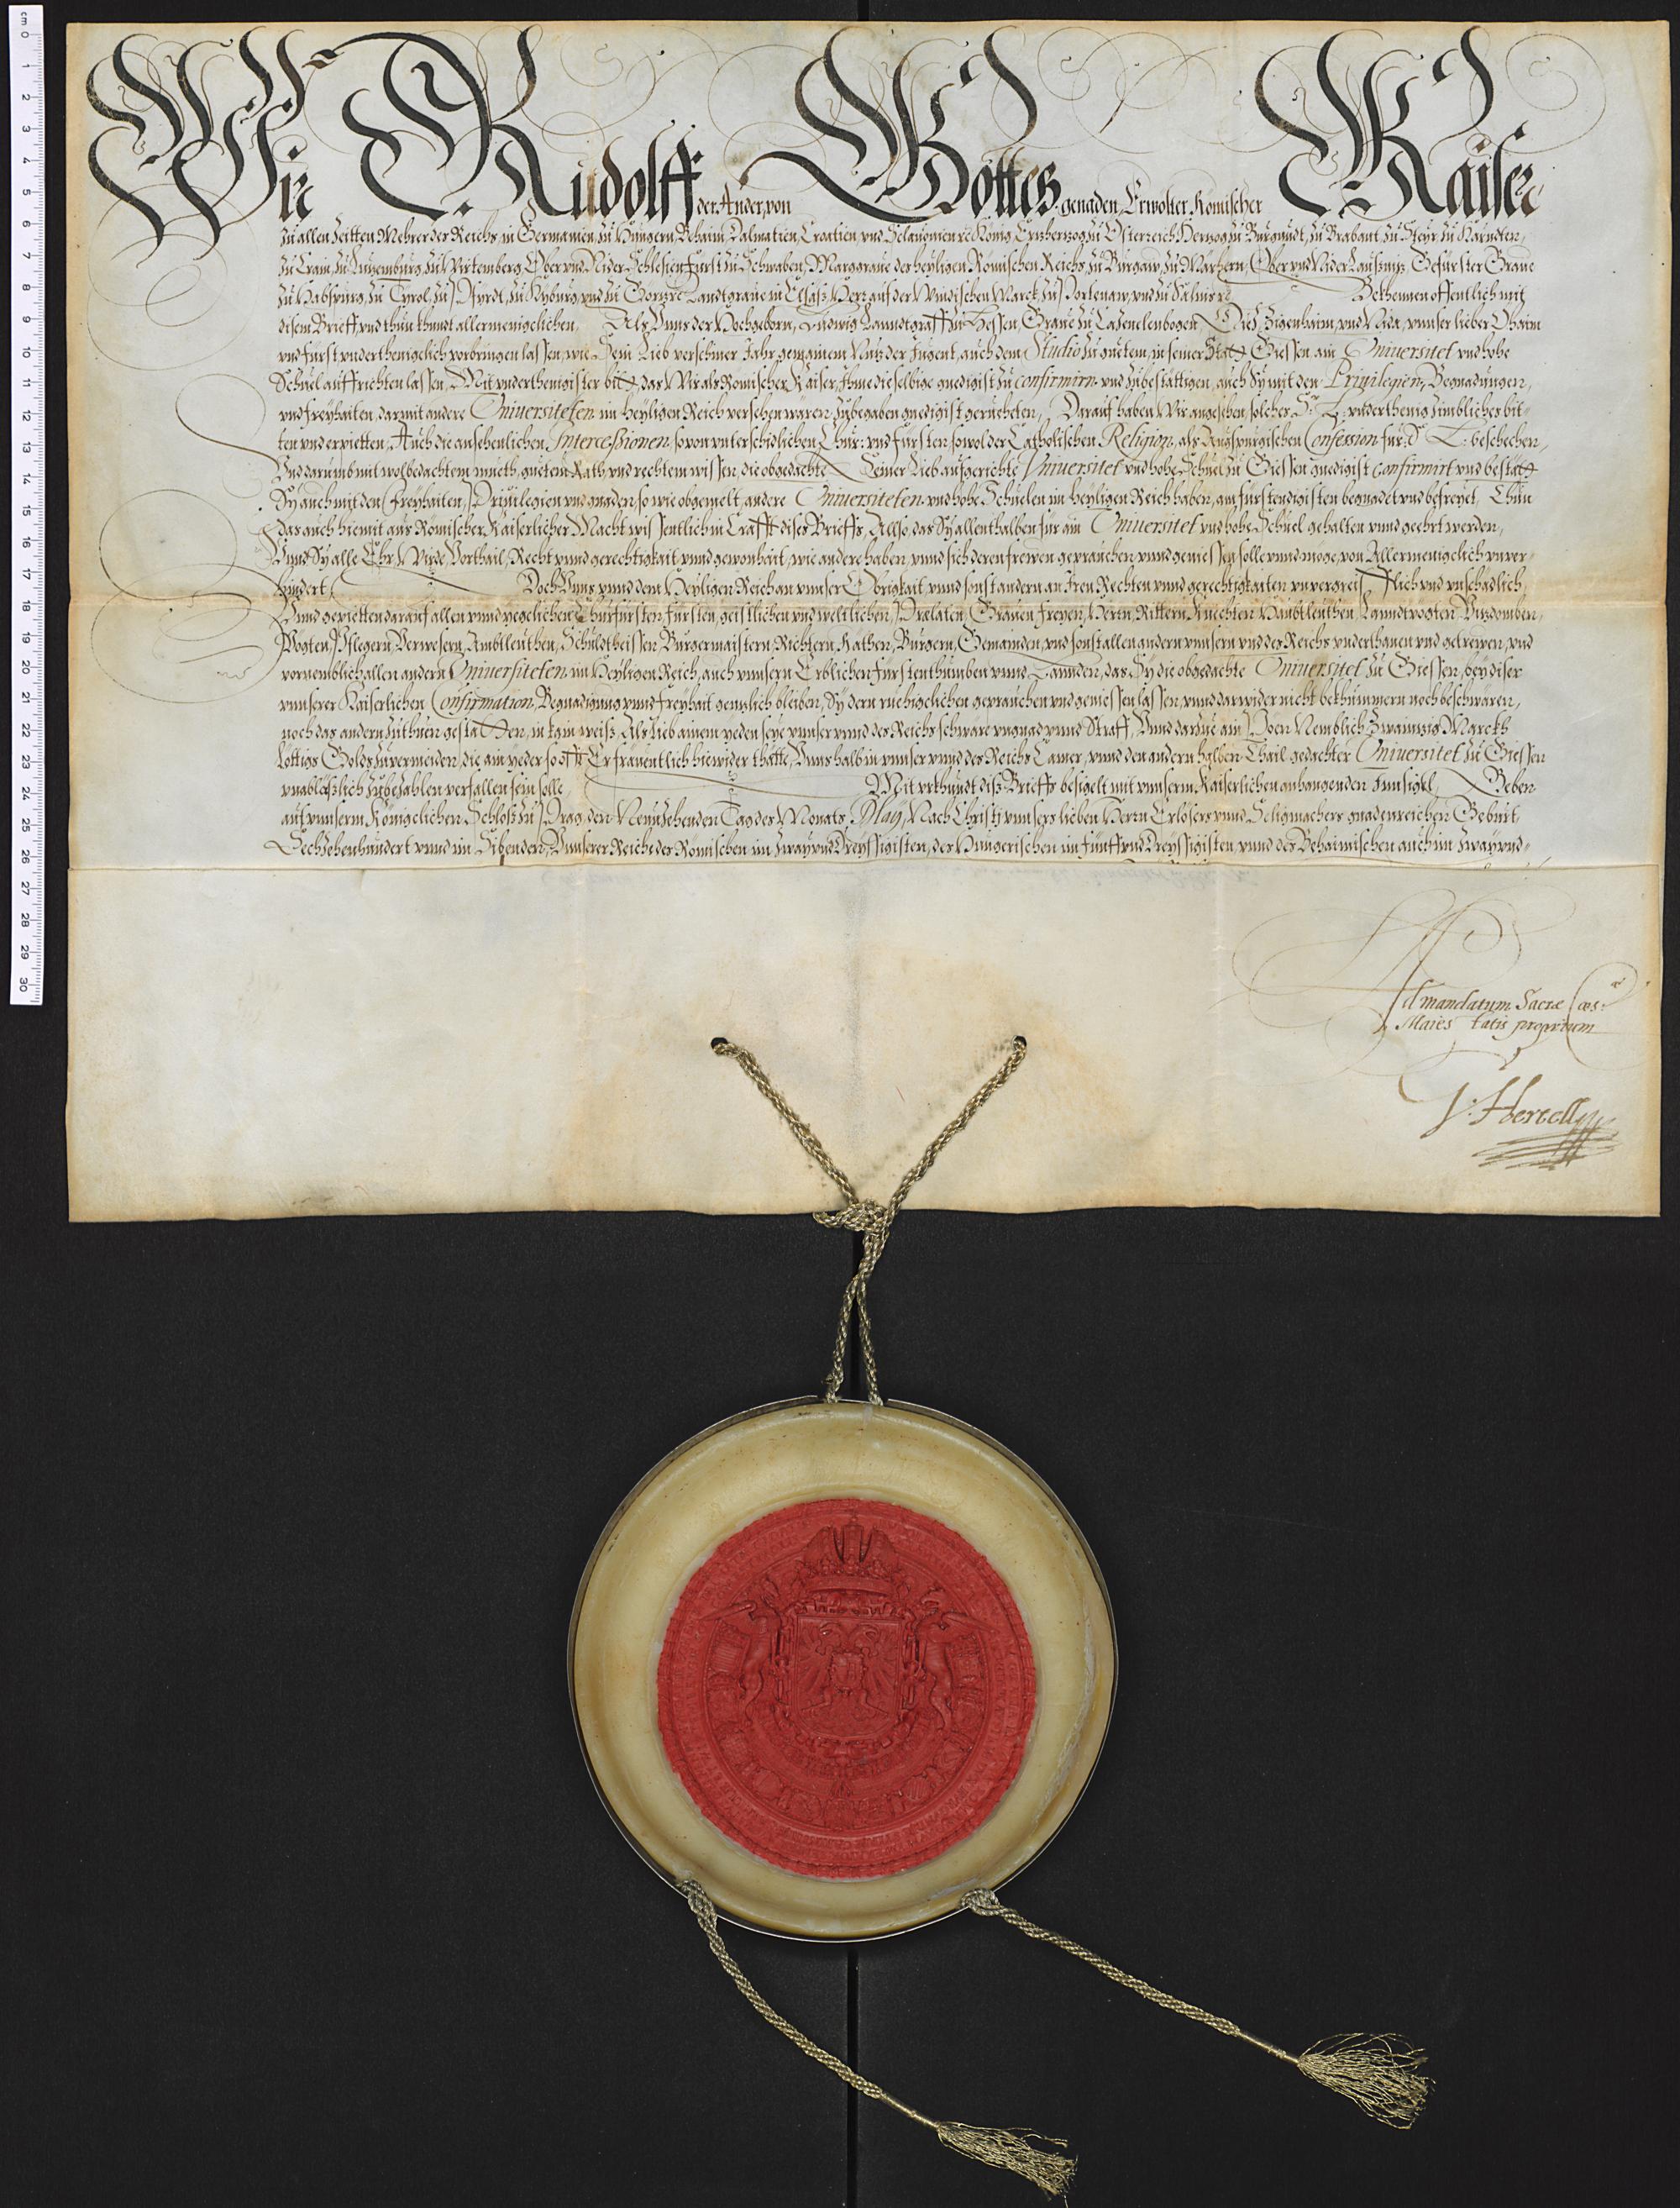 Wir Rudolff der Ander, von Gottes genaden, Erwölter Römischer Kaiser,
zu allen Zeitten Mehrer des Reichs, in Germanien, zu Hungern, Behaim, Dalmatien, Croatien, und Sclavonien ꝛc König, Erzherzog zu Österreich, Herzog zu Burgundt, zu Brabant, zu Steyr, zu Kärndten,
zu Crain, zu Luzemburg, zu Wirtemberg, Ober und Nider Schlesien, Fürst zu Schwaben, Marggrave des heyligen Römischen Reichs, zu Burgaw, zu Märhern, Ober und Nider Laußnitz, Gefürster Grave
zu Habspurg, zu Tyrol, zu Pfyrdt, zu Kyburg, und zu Görtz ꝛc Landtgrave in Elsäß, Herr auf der Windischen Marck, zu Portenaw, und zu Salins ꝛc Bekhennen offentlich mit
disem Brieff, und thun khundt allermenigelichen, Als Unns der Hochgeborn, Ludwig Lanndtgraff zu Hessen, Grave zu Cazenelenbogen, Diez, Zigenhaim, und Nida, unnser lieber Ohaim
und Fürst underthenigelich vorbringen lassen, wie Sein Lieb verschiner Jahr, gemainem Nutz der Jugent, auch dem Studio zu guetem, in seiner Statt Giessen ain Universitet und hohe
Schuel auffrichten lassen, Mit underthenigister bitt, das Wir als Römischer Kaiser, Ihme dieselbige gnedigist zu confirmirn und zubestättigen, auch Sy mit den Privilegien, Begnadungen,
und Freyhaiten, darmit andere Universiteten im heyligen Reich versehen wären zubegaben gnedigist geruecheten, Darauf haben Wir angesehen, solcher Sr. L: underthenig zimbliches bit-
ten und erpietten, Auch die ansehenlichen Intercessionen, so von unterschidlichen Chur: und Fürsten, sowol der Catholischen Religion, als Augspurgischen Confession für Sr L: beschechen,
Und darumb mit wolbedachtem mueth, guetem Rath, und rechtem wissen, die obgedachte Seiner Lieb aufgerichte Universitet und hohe Schuel zu Giessen gnedigist confirmirt und bestätt,
Sy auch mit den Freyhaiten, Privilegien und gnaden, so wie obgemelt, andere Universiteten und hohe Schuelen im heyligen Reich haben, am fürstendigisten begnadet und befreyet, Thun
das auch hiemit aus Römischer Kaiserlicher Macht wissentlich in Crafft dises Brieffs, Allso, das Sy allenthalben für ain Universitet und hohe Schuel gehalten unnd geehrt werden,
Unnd Sy alle Ehr, Wirde, Vorthail, Recht unnd gerechtigkait, unnd gewonhait, wie andere haben, unnd sich deren frewen geprauchen, unnd geniessen solle unnd möge, von Allermenigelich unver-
hindert, Doch Unns unnd dem Heyligen Reich an unnser Obrigkait, unnd sonst andern an Iren Rechten unnd gerechtigkaiten unvergreifflich und unschedlich,
Unnd gepietten darauf allen unnd yegelichen Churfürsten, Fürsten, geistlichen und weltlichen, Praelaten, Graven, Freyen, Herrn, Rittern, Knechten, Haubtleuthen, Lanndtvögten, Vizdomben,
Vögten, Pflegern, Verwesern, Ambtleuthen, Schuldtheissen, Burgermaistern, Richtern, Rathen, Burgern, Gemainden, und sonst allen andern unnsern und des Reichs underthanen und getrewen, und
vornemblich allen andern Universiteten im Heyligen Reich, auch unnsern Erblichen Fürstenthumben unnd Lannden, das Sy die obgedachte Universitet zu Giessen, bey diser
unnserer Kaiserlichen Confirmation, Begnadigung unnd Freyhait genzlich bleiben, Sy dern ruehigelichen geprauchen und geniessen lassen, unnd darwider nicht bekhummern noch beschwären,
noch das andern zuthuen gestatten, in kain weiß, Als lieb ainem yeden seye unnser unnd des Reichs schwäre ungnad unnd Straff, Unnd darzue ain Poen Nemblich Zwainzig Marckh
Löttigs Golds zuvermeiden, die ain yeder, so offt Er fräventlich hiewider thätte, Unns halb in unnser unnd des Reichs Camer, unnd den andern halben Thail gedachter Universitet zu Giessen
unableßlich zubezahlen verfallen sein solle, Mit urkhundt diß Brieffs, besigelt mit unnserm Kaiserlichen anhangenden Innsigel, Geben
auf unnserm Königelichen Schloß zu Prag, den Neunzehenden Tag des Monats May, Nach Christj unnsers lieben Herrn Erlösers unnd Seligmachers gnadenreichen Geburt
Sechzehenhundert unnd im Sibenden, Unnserer Reiche, des Römischen im Zwayund Dreyssigisten, des Hungerischen im Fünffund Dreyssigisten, unnd des Behaimischen auch im Zwayund-
Ad mandatum Sacrae Caes:ae
Maiestatis proprium
J: Hertell
cm 0 1 2 3 4 5 6 7 8 9 10 11 12 13 14 15 16 17 18 19 20 21 22 23 24 25 26 27 28 29 30